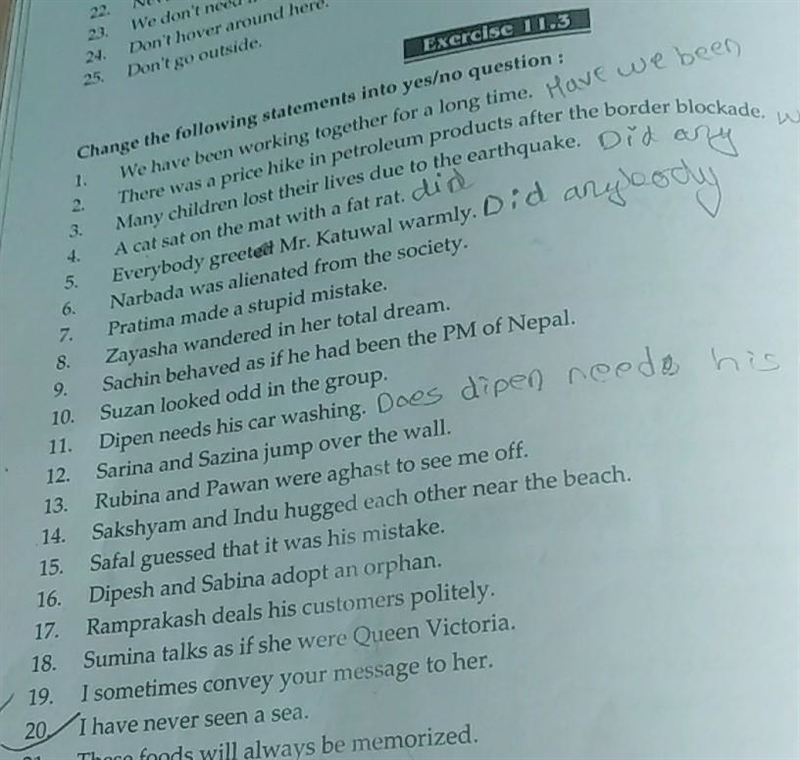 22.
23. We don't need
24. Don't hover around here.
25. Don't go outside.
Exercise 11.3
Change the following statements into yes/no question :
1. We have been working together for a long time. Have we been
2. There was a price hike in petroleum products after the border blockade. W
3. Many children lost their lives due to the earthquake. Did any
4. A cat sat on the mat with a fat rat. did
5. Everybody greeted Mr. Katuwal warmly. Did anybody
6. Narbada was alienated from the society.
7. Pratima made a stupid mistake.
8. Zayasha wandered in her total dream.
9. Sachin behaved as if he had been the PM of Nepal.
10. Suzan looked odd in the group.
11. Dipen needs his car washing. Does dipen needs his
12. Sarina and Sazina jump over the wall.
13. Rubina and Pawan were aghast to see me off.
14. Sakshyam and Indu hugged each other near the beach.
15. Safal guessed that it was his mistake.
16. Dipesh and Sabina adopt an orphan.
17. Ramprakash deals his customers politely.
18. Sumina talks as if she were Queen Victoria.
19. I sometimes convey your message to her.
20. I have never seen a sea.
foods will always be memorized.